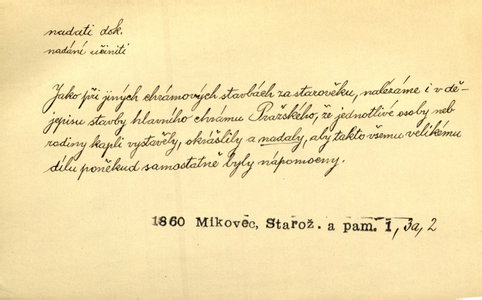 nadati dok.
nadání učiniti
Jako při jiných chrámových stavbách za starověku, nalezáme i v dě-
jepisu stavby hlavního chrámu Pražského, že jednotlivé osoby neb
rodiny kapli vystavěly, okrášlily a nadaly, aby takto vsemu velikému
dílu poněkud samostatně byly nápomocny.
1860 Mikovec, Starož. a pam. I, 3a, 2